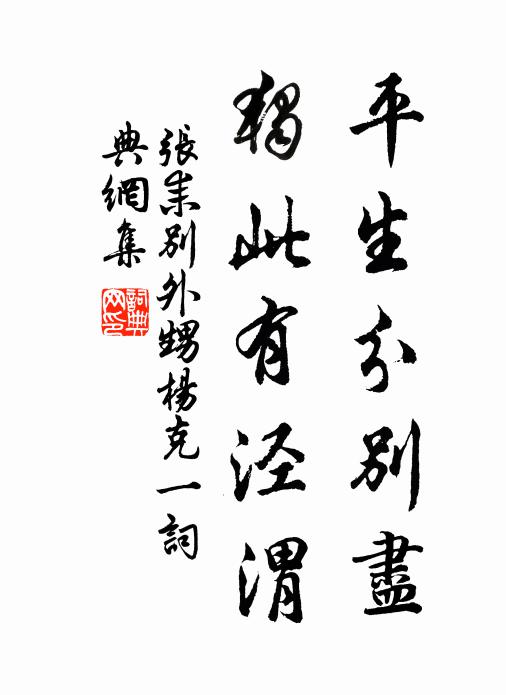 平生分別盡
獨此有涇渭
張耒別外甥楊克一詞
典網集
詞典
網印